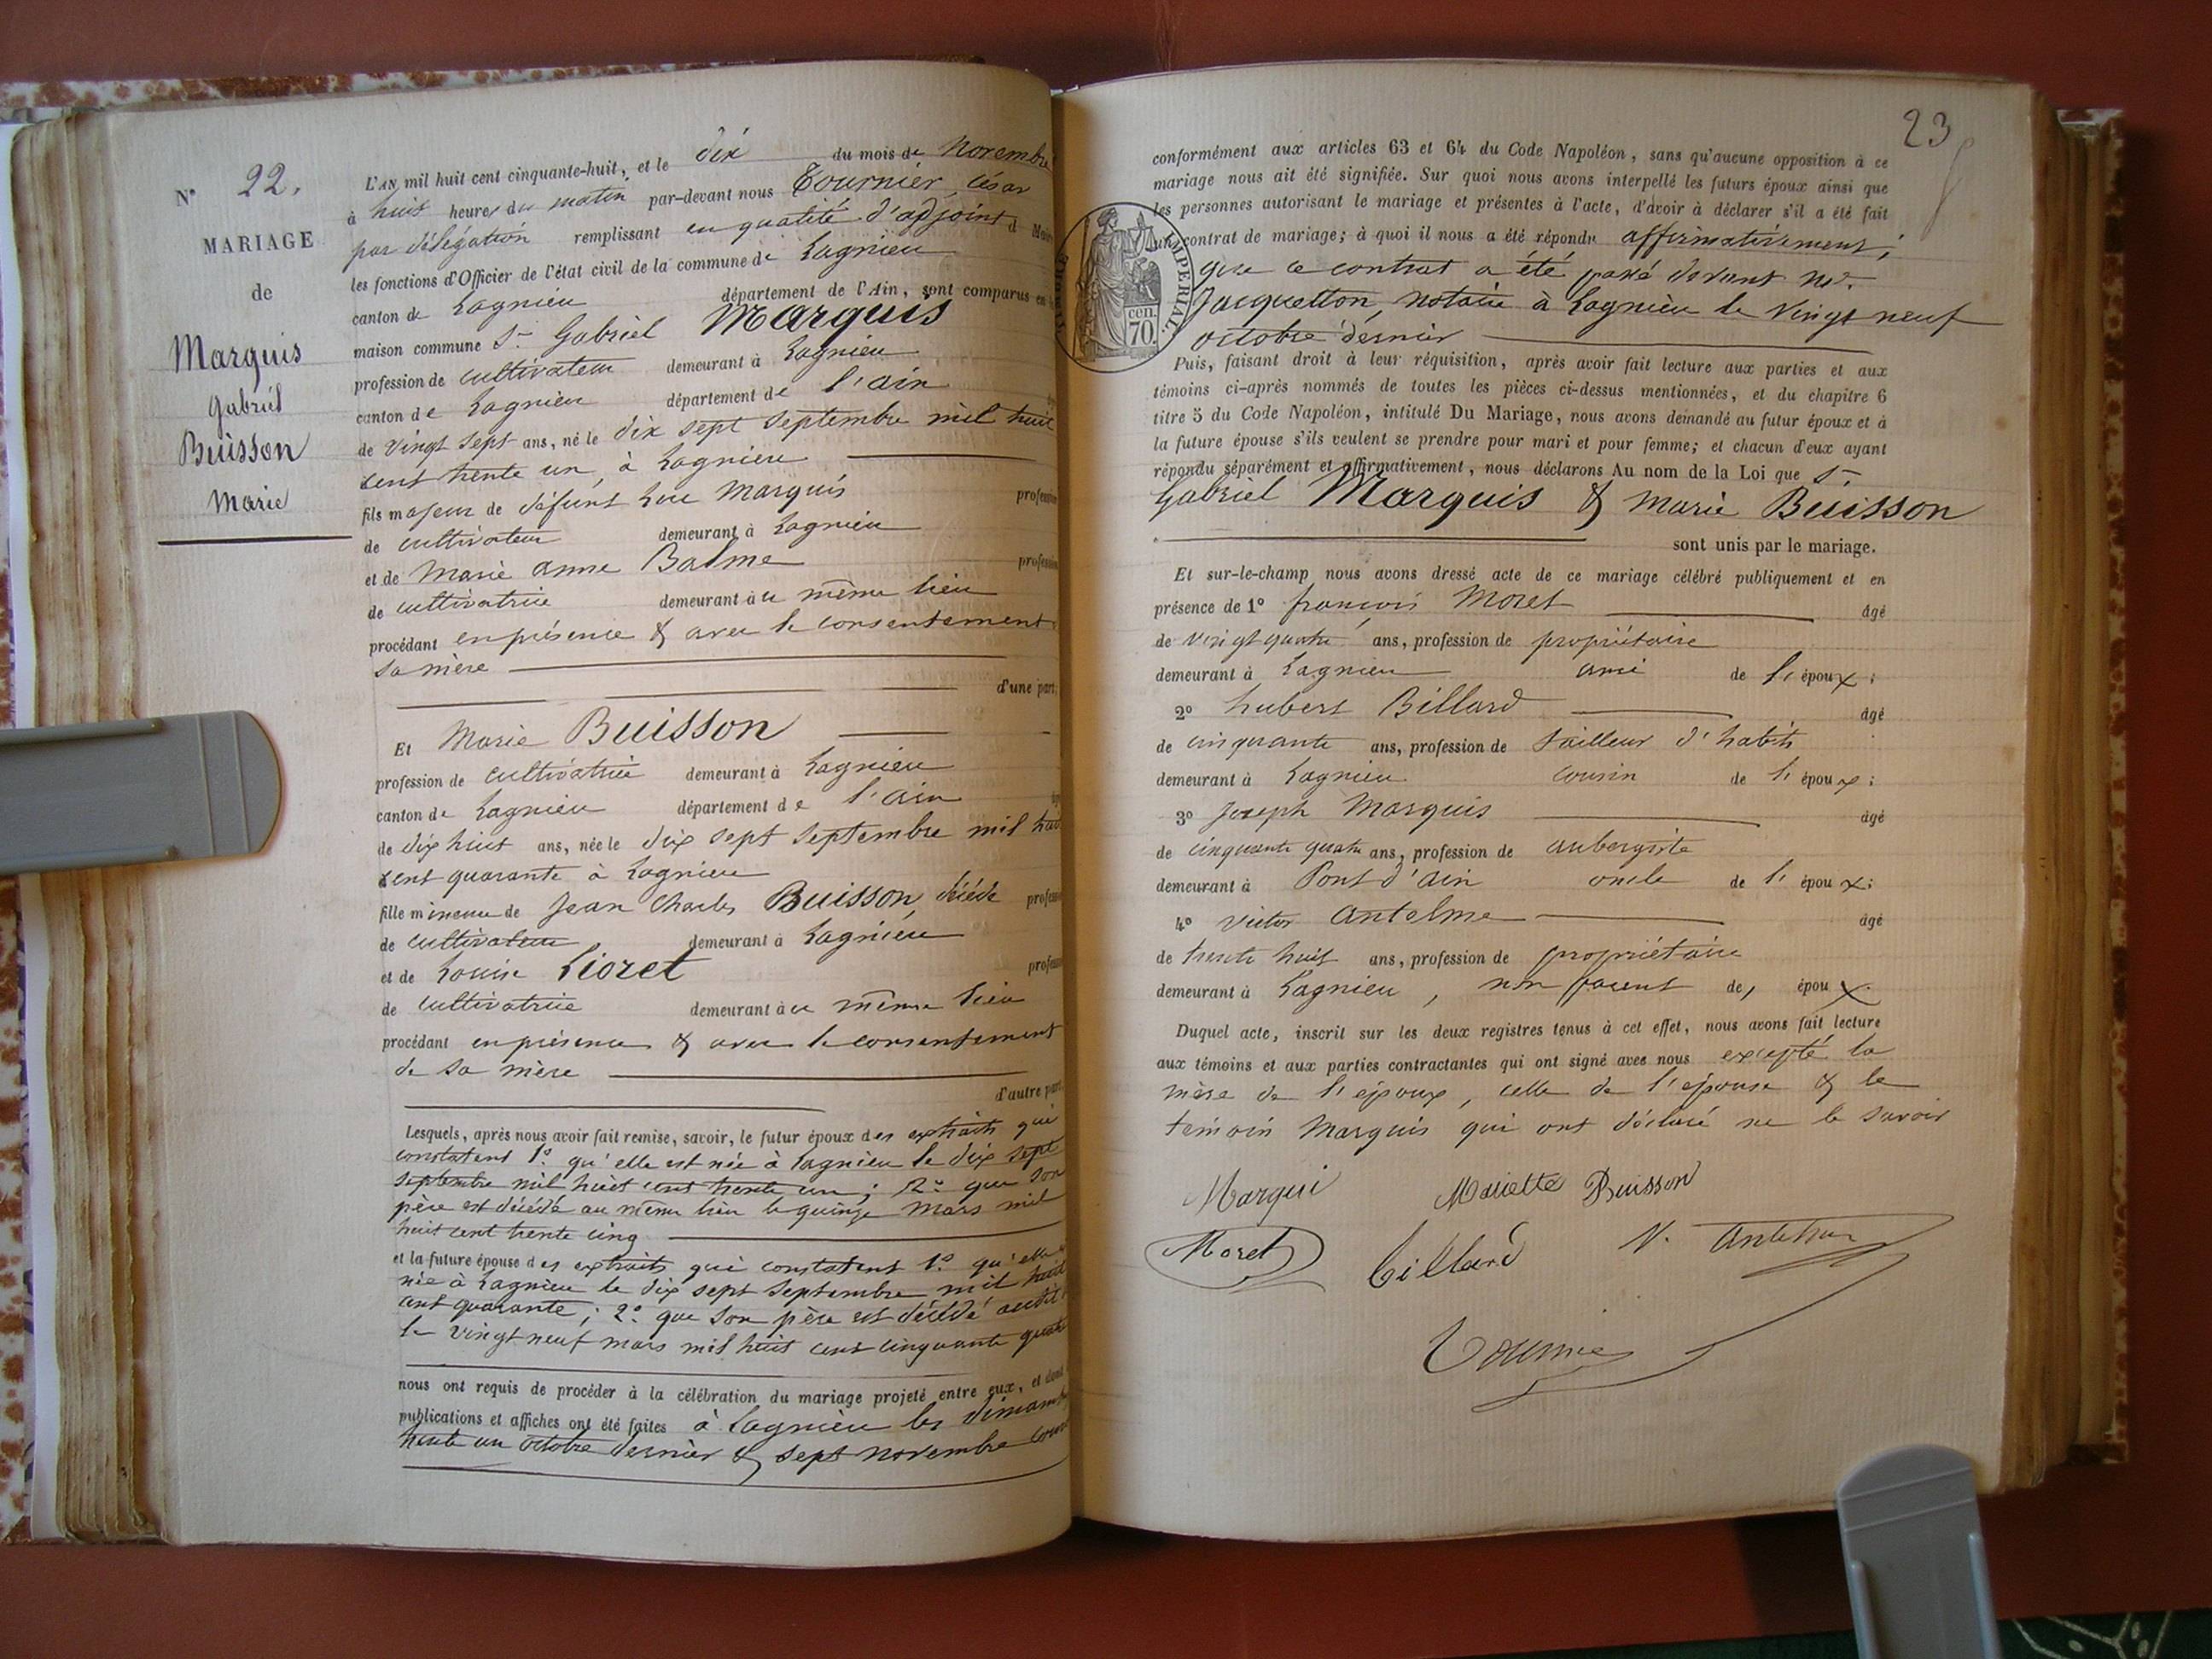 N° 22.
MARIAGE
de
Marquis
Gabriel
Buisson
Marie
L'AN mil huit cent cinquante-huit, et le dix du mois de Novembre
à huit heures du matin par-devant nous Tournier, César
par délégation remplissant en qualité d'adjoint
les fonctions d'Officier de l'état civil de la commune de Lagnieu
canton de Lagnieu département de l'Ain, sont comparus en
maison commune Sr Gabriel Marquis
profession de cultivateur demeurant à Lagnieu
canton de Lagnieu département de l'ain
de vingt sept ans, né le dix sept septembre mil huit
cent trente un, à Lagnieu
fils majeur de défunt Luc Marquis profession
de cultivateur demeurant à Lagnieu
et de Marie anne Balme profession
de cultivatrice demeurant à u même lieu
procédant en présence & avec le consentement
sa mère
d'une part,
Et Marie Buisson
profession de cultivatrice demeurant à Lagnieu
canton de Lagnieu département de l'ain
de dix huit ans, née le dix sept septembre mil huit
cent quarante à Lagnieu
fille mineure de Jean Charles Buisson, décédé profession
de cultivateur demeurant à Lagnieu
et de Louise Lioret profession
de cultivatrice demeurant à u même lieu
procédant en présence & avec le consentement
de sa mère
d'autre part
Lesquels, après nous avoir fait remise, savoir, le futur époux des extraits qui
constatent 1° qu'elle est née à Lagnieu le dix sept
septembre mil huit cent trente un; 2° que son
père est décédé au même lieu le quinze mars mil
huit cent trente cinq
et la future épouse des extraits qui constatent 1° qu'elle
née à Lagnieu le dix sept septembre mil huit
cent quarante; 2° que son père est décédé audit
le vingt neuf mars mil huit cent cinquante quatre
nous ont requis de procéder à la célébration du mariage projeté entre eux, et dont
publications et affiches ont été faites à Lagnieu les dimanches
trente un octobre dernier & sept novembre courant
23
conformément aux articles 63 et 64 du Code Napoléon, sans qu'aucune opposition à ce
mariage nous ait été signifiée. Sur quoi nous avons interpellé les futurs époux ainsi que
les personnes autorisant le mariage et présentes à l'acte, d'avoir à déclarer s'il a été fait
un contrat de mariage; à quoi il nous a été répondu affirmativement;
que ce contrat a été passé devant Me.
Jacquetton, notaire à Lagnieu le vingt neuf
octobre dernier
IMPERIAL.
cen.
70.
Puis, faisant droit à leur réquisition, après avoir fait lecture aux parties et aux
témoins ci-après nommés de toutes les pièces ci-dessus mentionnées, et du chapitre 6
titre 5 du Code Napoléon, intitulé Du Mariage, nous avons demandé au futur époux et à
la future épouse s'ils veulent se prendre pour mari et pour femme; et chacun d'eux ayant
répondu séparément et affirmativement, nous déclarons Au nom de la Loi que Sr
Gabriel Marquis & Marie Buisson
sont unis par le mariage.
Et sur-le-champ nous avons dressé acte de ce mariage célébré publiquement et en
présence de 1° françois Moret âgé
de vingt quatre ans, profession de propriétaire
demeurant à Lagnieu ami de l' époux;
2° hubert Billard âgé
de cinquante ans, profession de tailleur d'habits
demeurant à Lagnieu cousin de l' époux;
3° Joseph Marquis âgé
de cinquante quatre ans, profession de aubergiste
demeurant à Pont d'ain oncle de l' époux;
4° Victor Antelme âgé
de trente huit ans, profession de propriétaire
demeurant à Lagnieu, non parent des époux.
Duquel acte, inscrit sur les deux registres tenus à cet effet, nous avons fait lecture
aux témoins et aux parties contractantes qui ont signé avec nous excepté la
mère de l'époux, celle de l'épouse & le
témoin Marquis qui ont déclaré ne le savoir
Marqui Mariette Buisson
Moret billard V. Antelme
Tournier